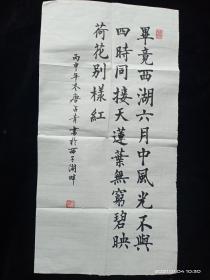 畢竟西湖六月中風光不與
四時同接天蓮葉無窮碧映
荷花別樣紅
丙申年木唐占青書於西子湖畔